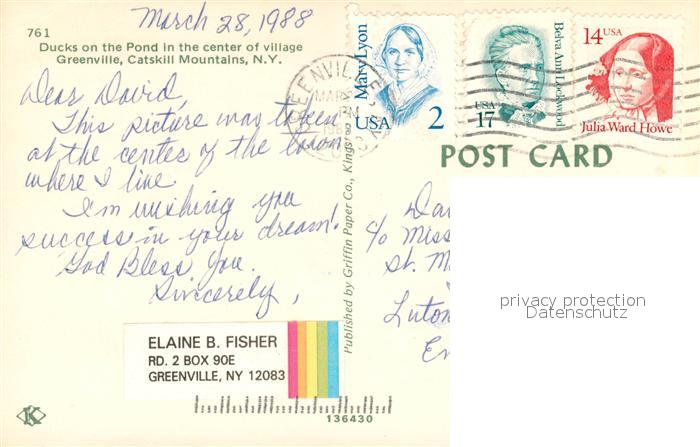 March 28, 1988
761
Ducks on the Pond in the center of village
Greenville, Catskill Mountains, N.Y.
Dear David,
This picture was taken
at the center of the town
where I live
I'm wishing you
success in your dream!
God Bless You.
Sincerely,
ELAINE B. FISHER
RD. 2 BOX 90E
GREENVILLE, NY 12083
K
136430
Published by Griffin Paper Co., Kings
GREENVILLE
MAR
PM
Mary Lyon
USA 2
Belva Ann Lockwood
USA
17
14 USA
Julia Ward Howe
POST CARD
c/o Miss
St. M
Luton
En
privacy protection
Datenschutz